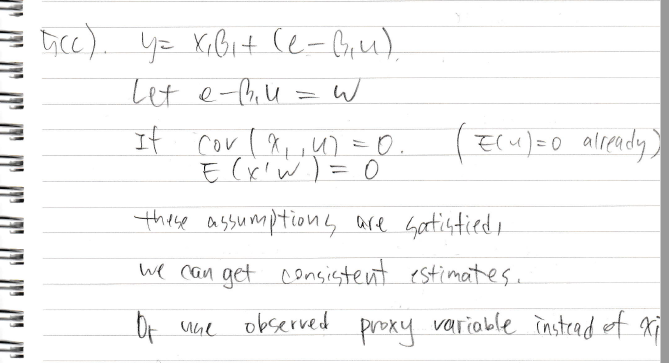 5(c). y = x₁β₁ + (e - β₁u).
Let e - β₁u = w
If cov(x₁, u) = 0. (E(u)=0 already)
E(x'w) = 0
these assumptions are satisfied,
we can get consistent estimates.
Or use observed proxy variable instead of x₁